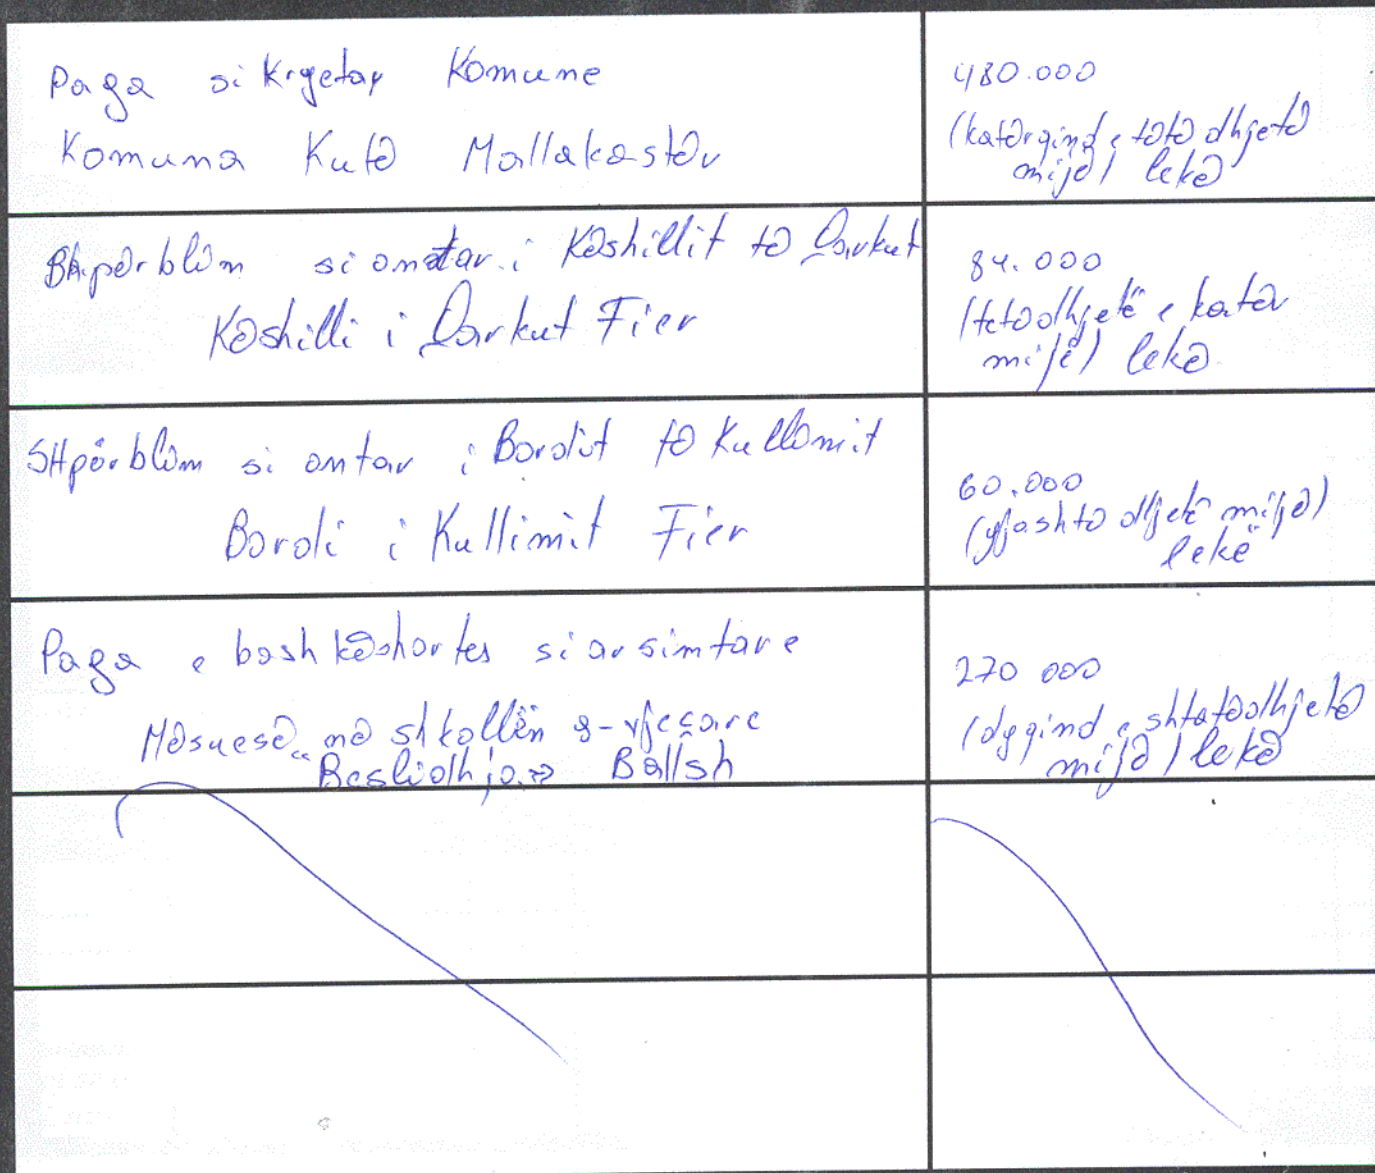 Paga si kryetar Komune
Komuna Kutë Mallakastër
480.000
(katërqind e tetë dhjetë
mijë) lekë
Shpërblim si anëtar i Këshillit të Qarkut
Këshilli i Qarkut Fier
84.000
(tetëdhjetë e katër
mijë) lekë
SHpërblim si antar i Bordit të Kullimit
Bordi i Kullimit Fier
60.000
(gjashtë dhjetë mijë)
lekë
Paga e bashkëshortes si arsimtare
Mësuese në shkollën 8-vjeçare
"Beslidhja" Ballsh
270 000
(dyqind e shtatëdhjetë
mijë) lekë